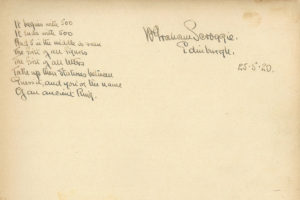 It begins with 500
It ends with 500
And 5 in the middle is seen
The first of all figures
The first of all letters
Take up their stations between
and you've the name
Of an ancient King.
W. Graham Scroggie.
Edinburgh.
25-5-20.